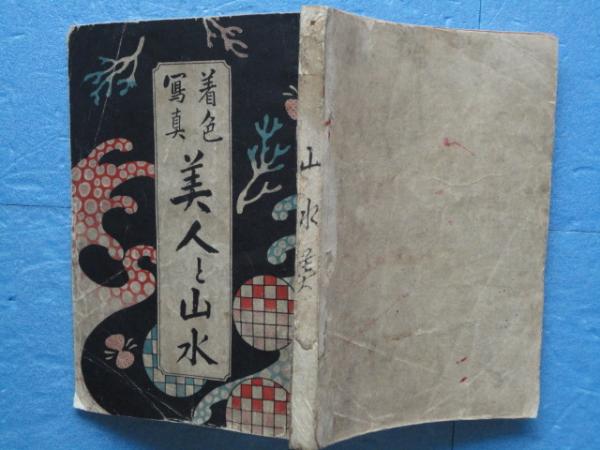 着色
寫真
美人と山水
山水美人